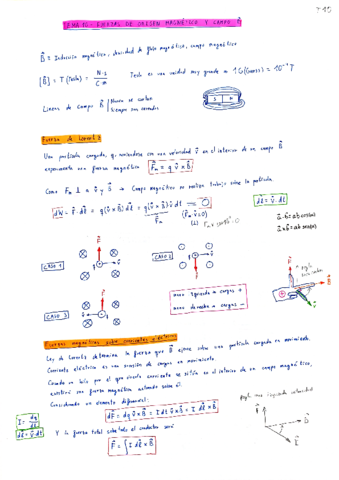 TEMA 10 - FUERZAS DE ORIGEN MAGNÉTICO Y CAMPO B⃗
B⃗ = Inducción magnética, densidad de flujo magnético, campo magnético
[B⃗] = T (Tesla) = N·s / C·m
Tesla es una unidad muy grande → 1 G (Gauss) = 10⁻⁴ T
Líneas de Campo B⃗ | Nunca se cortan
Siempre son cerradas
Fuerza de Lorentz
Una partícula cargada, moviéndose con una velocidad v⃗ en el interior de un campo B⃗
experimenta una fuerza magnética F⃗m = q v⃗ × B⃗
Como F⃗m ⊥ a v⃗ y B⃗ → Campo magnético no realiza trabajo sobre la partícula.
dW = F⃗·dℓ⃗ = q(v⃗×B⃗)dℓ⃗ = q(v⃗×B⃗)v⃗ dt = 0
dℓ⃗ = v⃗·dt
F⃗m
(F⃗m·v⃗=0)
CASO 1
CASO 2
CASO 3
mano izquierda → cargas +
mano derecha → cargas -
Fuerzas magnéticas sobre corrientes eléctricas
Ley de Lorentz determina la fuerza que B⃗ ejerce sobre una partícula cargada en movimiento.
Corriente eléctrica es una sucesión de cargas en movimiento.
Cuando un hilo por el que circula corriente se sitúa en el interior de un campo magnético,
existirá una fuerza magnética actuando sobre él.
Considerando un elemento diferencial:
dF⃗ = dq v⃗×B⃗ = I dt v⃗×B⃗ = I dℓ⃗×B⃗
I = dq/dt
dℓ⃗ = v⃗·dt
Y la fuerza total sobre todo el conductor será
F⃗ = ∫ I dℓ⃗×B⃗